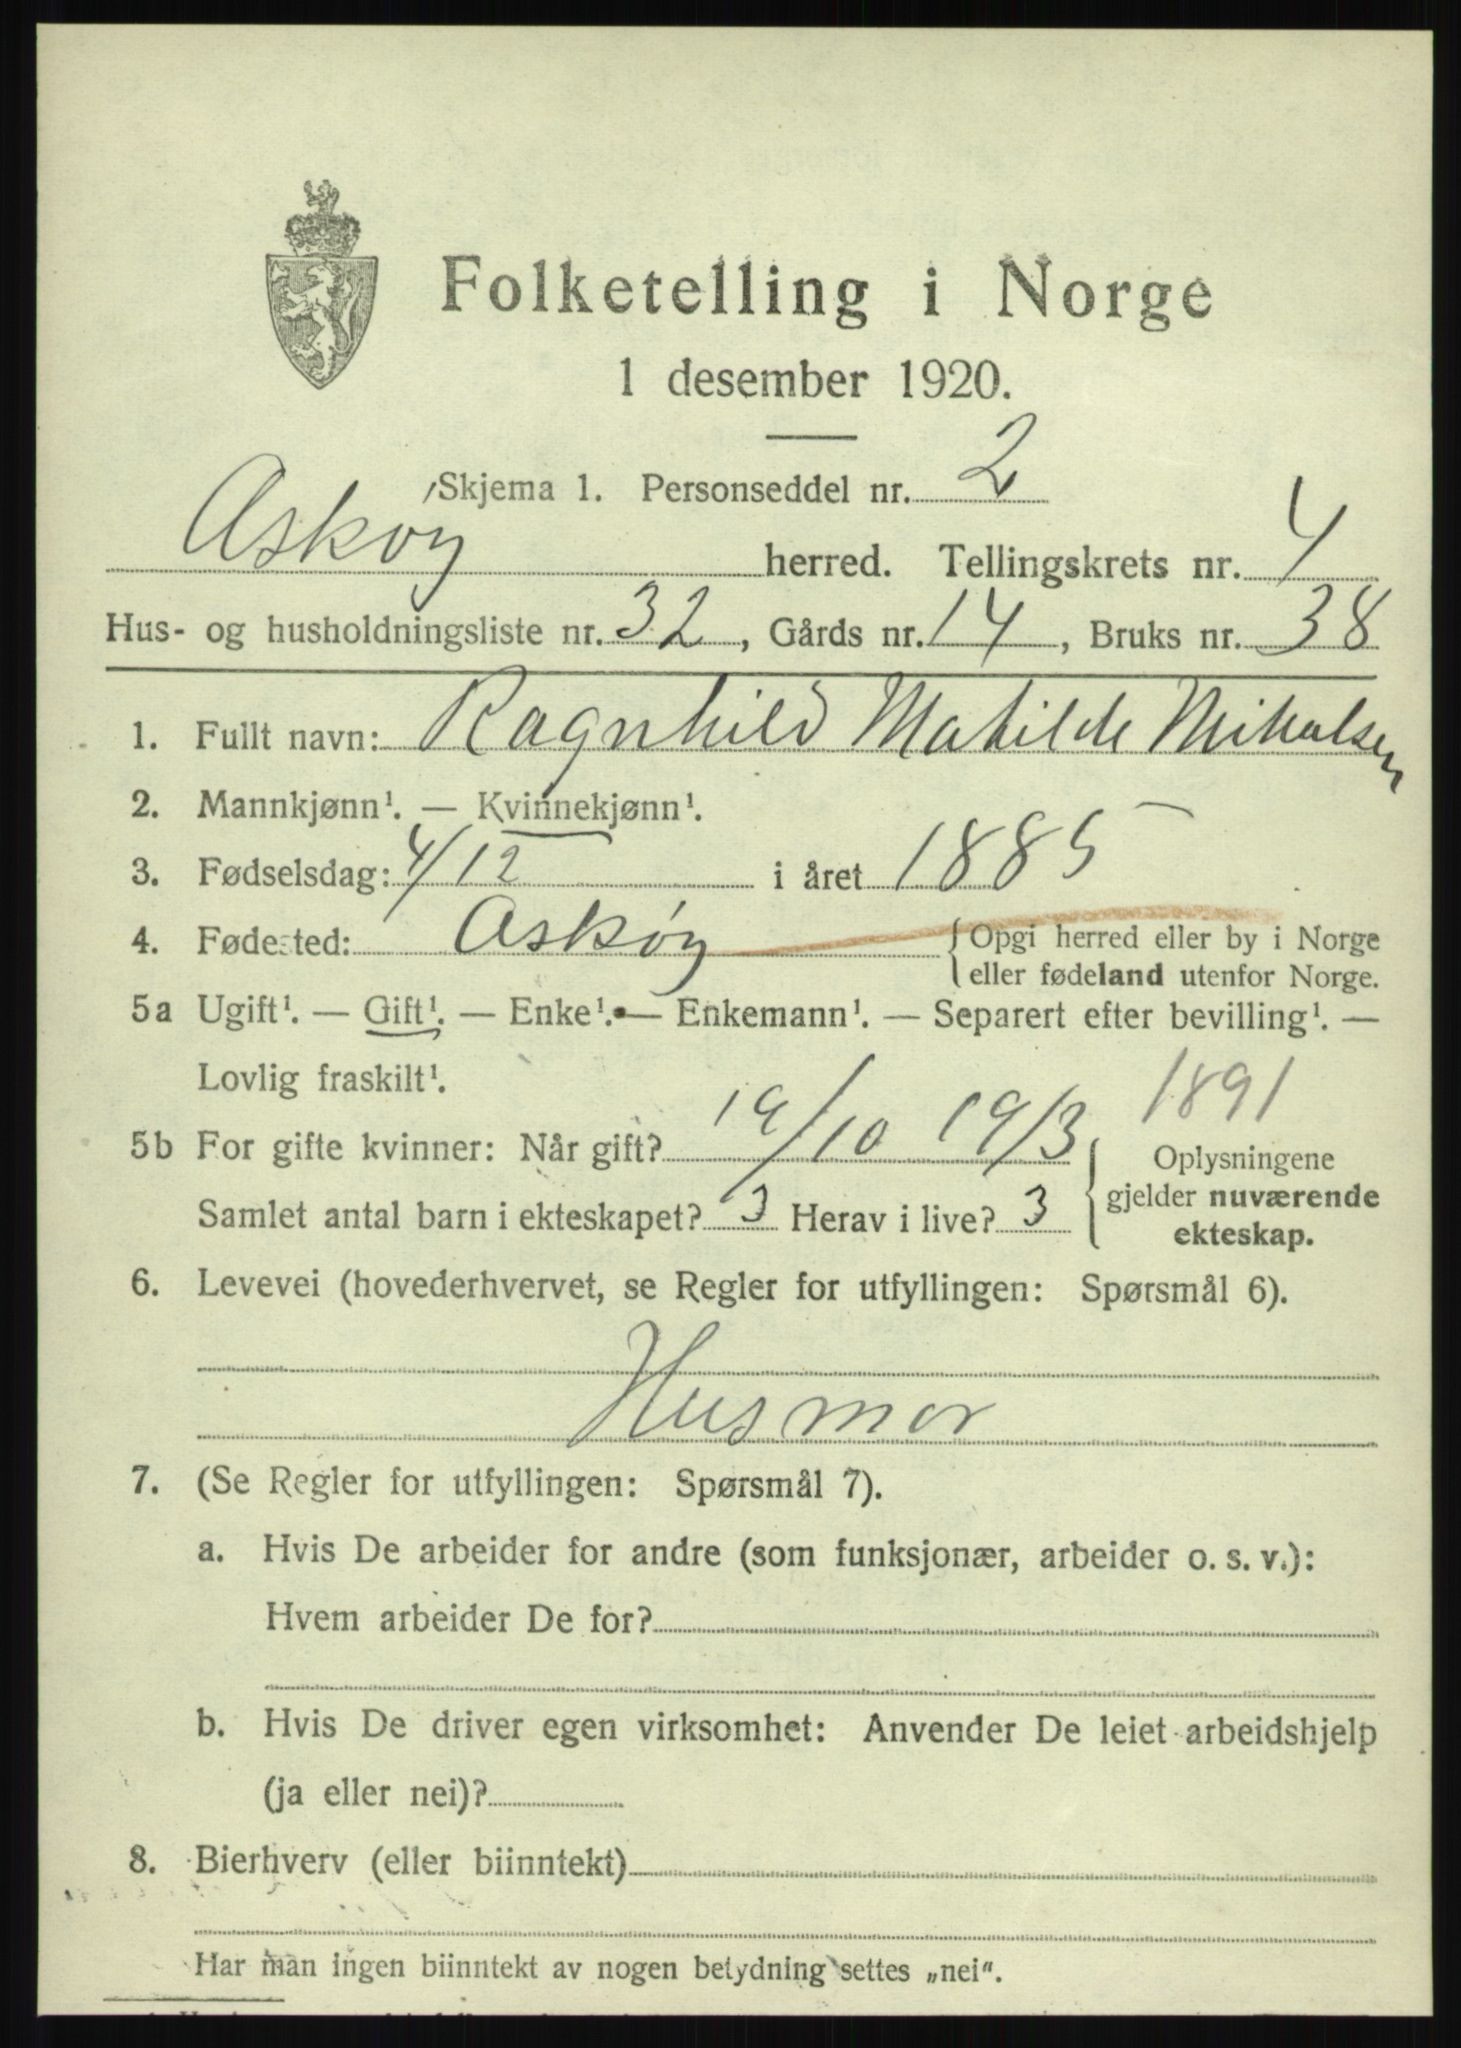 Folketelling i Norge
1 desember 1920.
Skjema 1. Personseddel nr. 2
Askøy herred. Tellingskrets nr. 4
Hus- og husholdningsliste nr. 32, Gårds nr. 14, Bruks nr. 38
1. Fullt navn: Ragnhild Matilde Mikalsen
2. Mannkjønn¹. — Kvinnekjønn¹.
3. Fødselsdag: 4/12 i året 1885
4. Fødested: Askøy { Opgi herred eller by i Norge
eller fødeland utenfor Norge.
5a Ugift¹. — Gift¹. — Enke¹. — Enkemann¹. — Separert efter bevilling¹. —
Lovlig fraskilt¹.
1891
5b For gifte kvinner: Når gift? 19/10 1913
Samlet antal barn i ekteskapet? 3 Herav i live? 3
{ Oplysningene
gjelder nuværende
ekteskap.
6. Levevei (hovederhvervet, se Regler for utfyllingen: Spørsmål 6).
Husmor
7. (Se Regler for utfyllingen: Spørsmål 7).
a. Hvis De arbeider for andre (som funksjonær, arbeider o. s. v.):
Hvem arbeider De for?
b. Hvis De driver egen virksomhet: Anvender De leiet arbeidshjelp
(ja eller nei)?
8. Bierhverv (eller biinntekt)
Har man ingen biinntekt av nogen betydning settes „nei“.